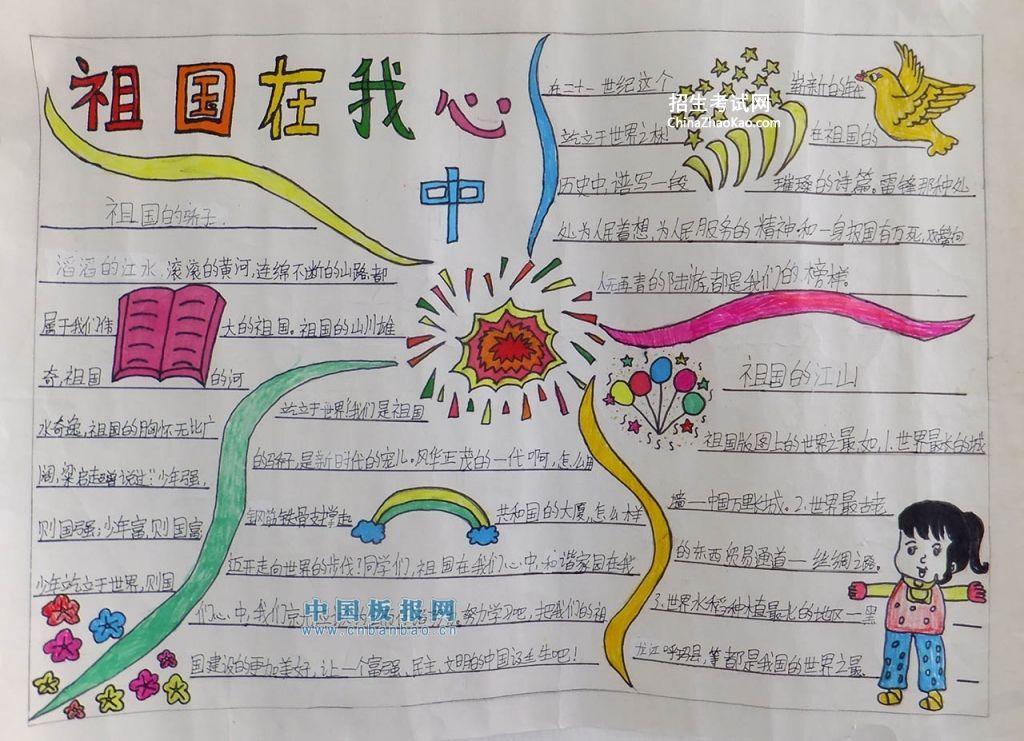 祖国在我心中
祖国的骄子.
滔滔的江水,滚滚的黄河,连绵不断的山路,都
属于我们伟大的祖国。祖国的山川雄
奇,祖国的河
水奇逸,祖国的胸怀无比广
阔,梁启超曾说过:"少年强,
则国强;少年富,则国富
少年站立于世界,则国
站立于世界!我们是祖国
的骄子,是新时代的宠儿。风华正茂的一代啊,怎么用
钢筋铁骨支撑起共和国的大厦,怎么样
迈开走向世界的步伐?同学们,祖国在我们心中,和谐家园在我
们心中,我们
努力学习吧,把我们的祖
国建设的更加美好,让一个富强、民主、文明的中国诞生吧!
在二十一世纪这个
站立于世界之林!在祖国的
历史中,谱写一段璀璨的诗篇。雷锋那种处
处为人民着想,为人民服务的精神和一身报国有万死,
人无再青的陆游,都是我们的榜样。
祖国的江山
祖国版图上的世界之最,如,1.世界最长的城
墙一中国万里长城、2.世界最古老
的东西贸易通道一丝绸之路。
3.世界水稻种植最北的地区一黑
龙江呼玛县,等都是我国的世界之最。
招生考试网
ChinaZhaoKao.com
中国板报网
www.cnbanbao.cn